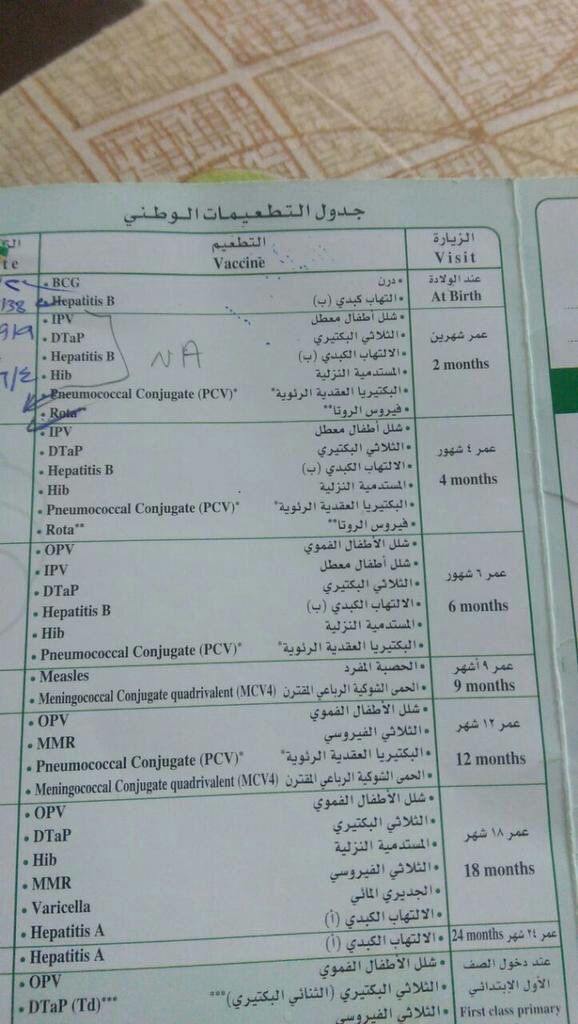 جدول التطعيمات الوطني
الزيارة التطعيم
Visit Vaccine
عند الولادة
At Birth
• درن • BCG
• التهاب كبدي (ب) • Hepatitis B
138
عمر شهرين
2 months
• شلل أطفال معطل • IPV
• الثلاثي البكتيري • DTaP
• الالتهاب الكبدي (ب) • Hepatitis B
• المستدمية النزلية • Hib
• البكتيريا العقدية الرئوية* • Pneumococcal Conjugate (PCV)*
• فيروس الروتا** • Rota**
NA
عمر ٤ شهور
4 months
• شلل أطفال معطل • IPV
• الثلاثي البكتيري • DTaP
• الالتهاب الكبدي (ب) • Hepatitis B
• المستدمية النزلية • Hib
• البكتيريا العقدية الرئوية* • Pneumococcal Conjugate (PCV)*
• فيروس الروتا** • Rota**
عمر ٦ شهور
6 months
• شلل الأطفال الفموي • OPV
• شلل أطفال معطل • IPV
• الثلاثي البكتيري • DTaP
• الالتهاب الكبدي (ب) • Hepatitis B
• المستدمية النزلية • Hib
• البكتيريا العقدية الرئوية* • Pneumococcal Conjugate (PCV)*
عمر ٩ أشهر
9 months
• الحصبة المفرد • Measles
• الحمى الشوكية الرباعي المقترن • Meningococcal Conjugate quadrivalent (MCV4)
عمر ١٢ شهر
12 months
• شلل الأطفال الفموي • OPV
• الثلاثي الفيروسي • MMR
• البكتيريا العقدية الرئوية* • Pneumococcal Conjugate (PCV)*
• الحمى الشوكية الرباعي المقترن • Meningococcal Conjugate quadrivalent (MCV4)
عمر ١٨ شهر
18 months
• شلل الأطفال الفموي • OPV
• الثلاثي البكتيري • DTaP
• المستدمية النزلية • Hib
• الثلاثي الفيروسي • MMR
• الجديري المائي • Varicella
• الالتهاب الكبدي (أ) • Hepatitis A
عمر ٢٤ شهر 24 months
• الالتهاب الكبدي (أ) • Hepatitis A
عند دخول الصف
الأول الإبتدائي
First class primary
• شلل الأطفال الفموي • OPV
• الثلاثي البكتيري (الثنائي البكتيري)*** • DTaP (Td)***
• الثلاثي الفيروسي